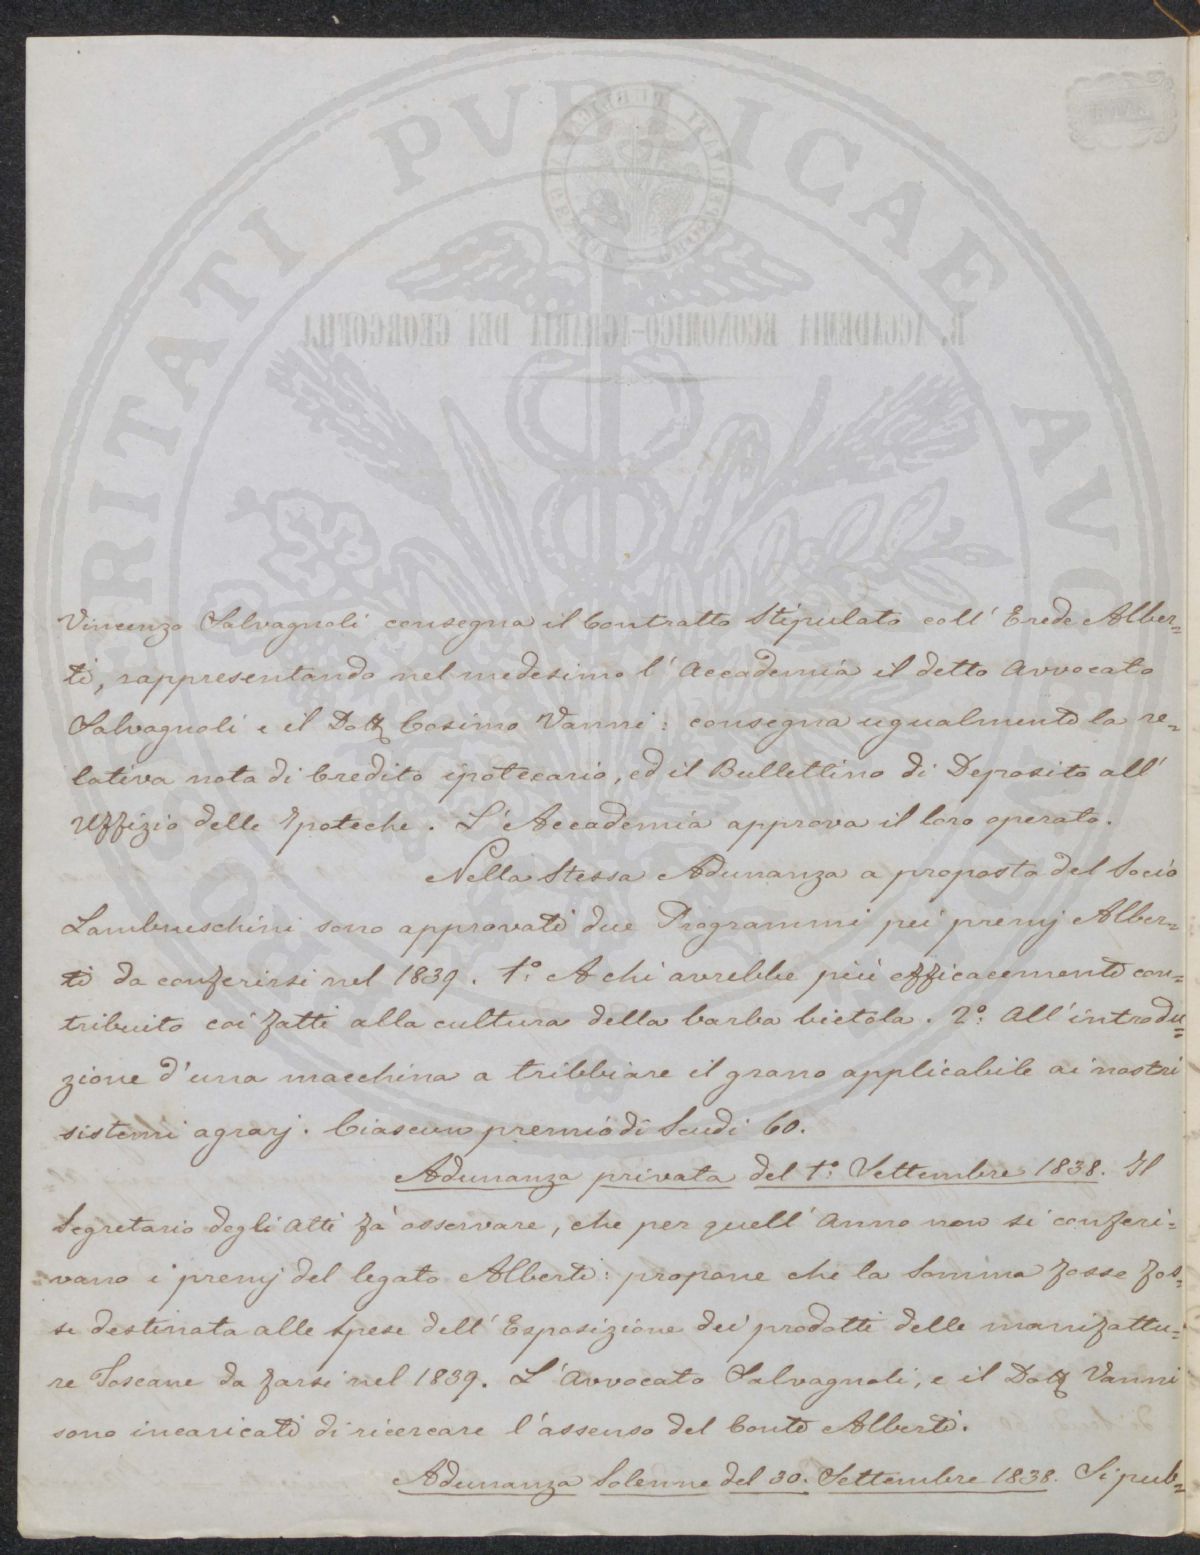 PROSPERITATI PVBLICAE AVGENDAE
R. ACCADEMIA ECONOMICO-AGRARIA DEI GEORGOFILI
Vincenzo Salvagnoli consegna il Contratto Stipulato coll' Erede Alber=
ti, rappresentando nel medesimo l' Accademia il detto Avvocato
Salvagnoli e il Dott. Cosimo Vanni: consegna ugualmente la re=
lativa nota di Credito ipotecario, ed il Bullettino di Deposito all'
Uffizio delle Ipoteche. L' Accademia approva il loro operato.
Nella Stessa Adunanza a proposta del Socio
Lambruschini sono approvati due Programmi pei premj Alber=
ti da conferirsi nel 1839. 1°: A chi avrebbe più efficacemente con=
tribuito coi fatti alla cultura della barba bietola. 2°: All' introdu=
zione d' una macchina a tribbiare il grano applicabile ai nostri
sistemi agrarj. Ciascun premio di Scudi 60.
Adunanza privata del 1°: Settembre 1838. Il
Segretario degli Atti fà osservare, che per quell' Anno non si conferi=
vano i premj del legato Alberti: propone che la Somma fosse fos=
se destinata alle Spese dell' Esposizione dei prodotti delle manifattu=
re Toscane da farsi nel 1839. L' Avvocato Salvagnoli, e il Dott. Vanni
sono incaricati di ricercare l' assenso del Conte Alberti.
Adunanza Solenne del 30. Settembre 1838. Si pub=